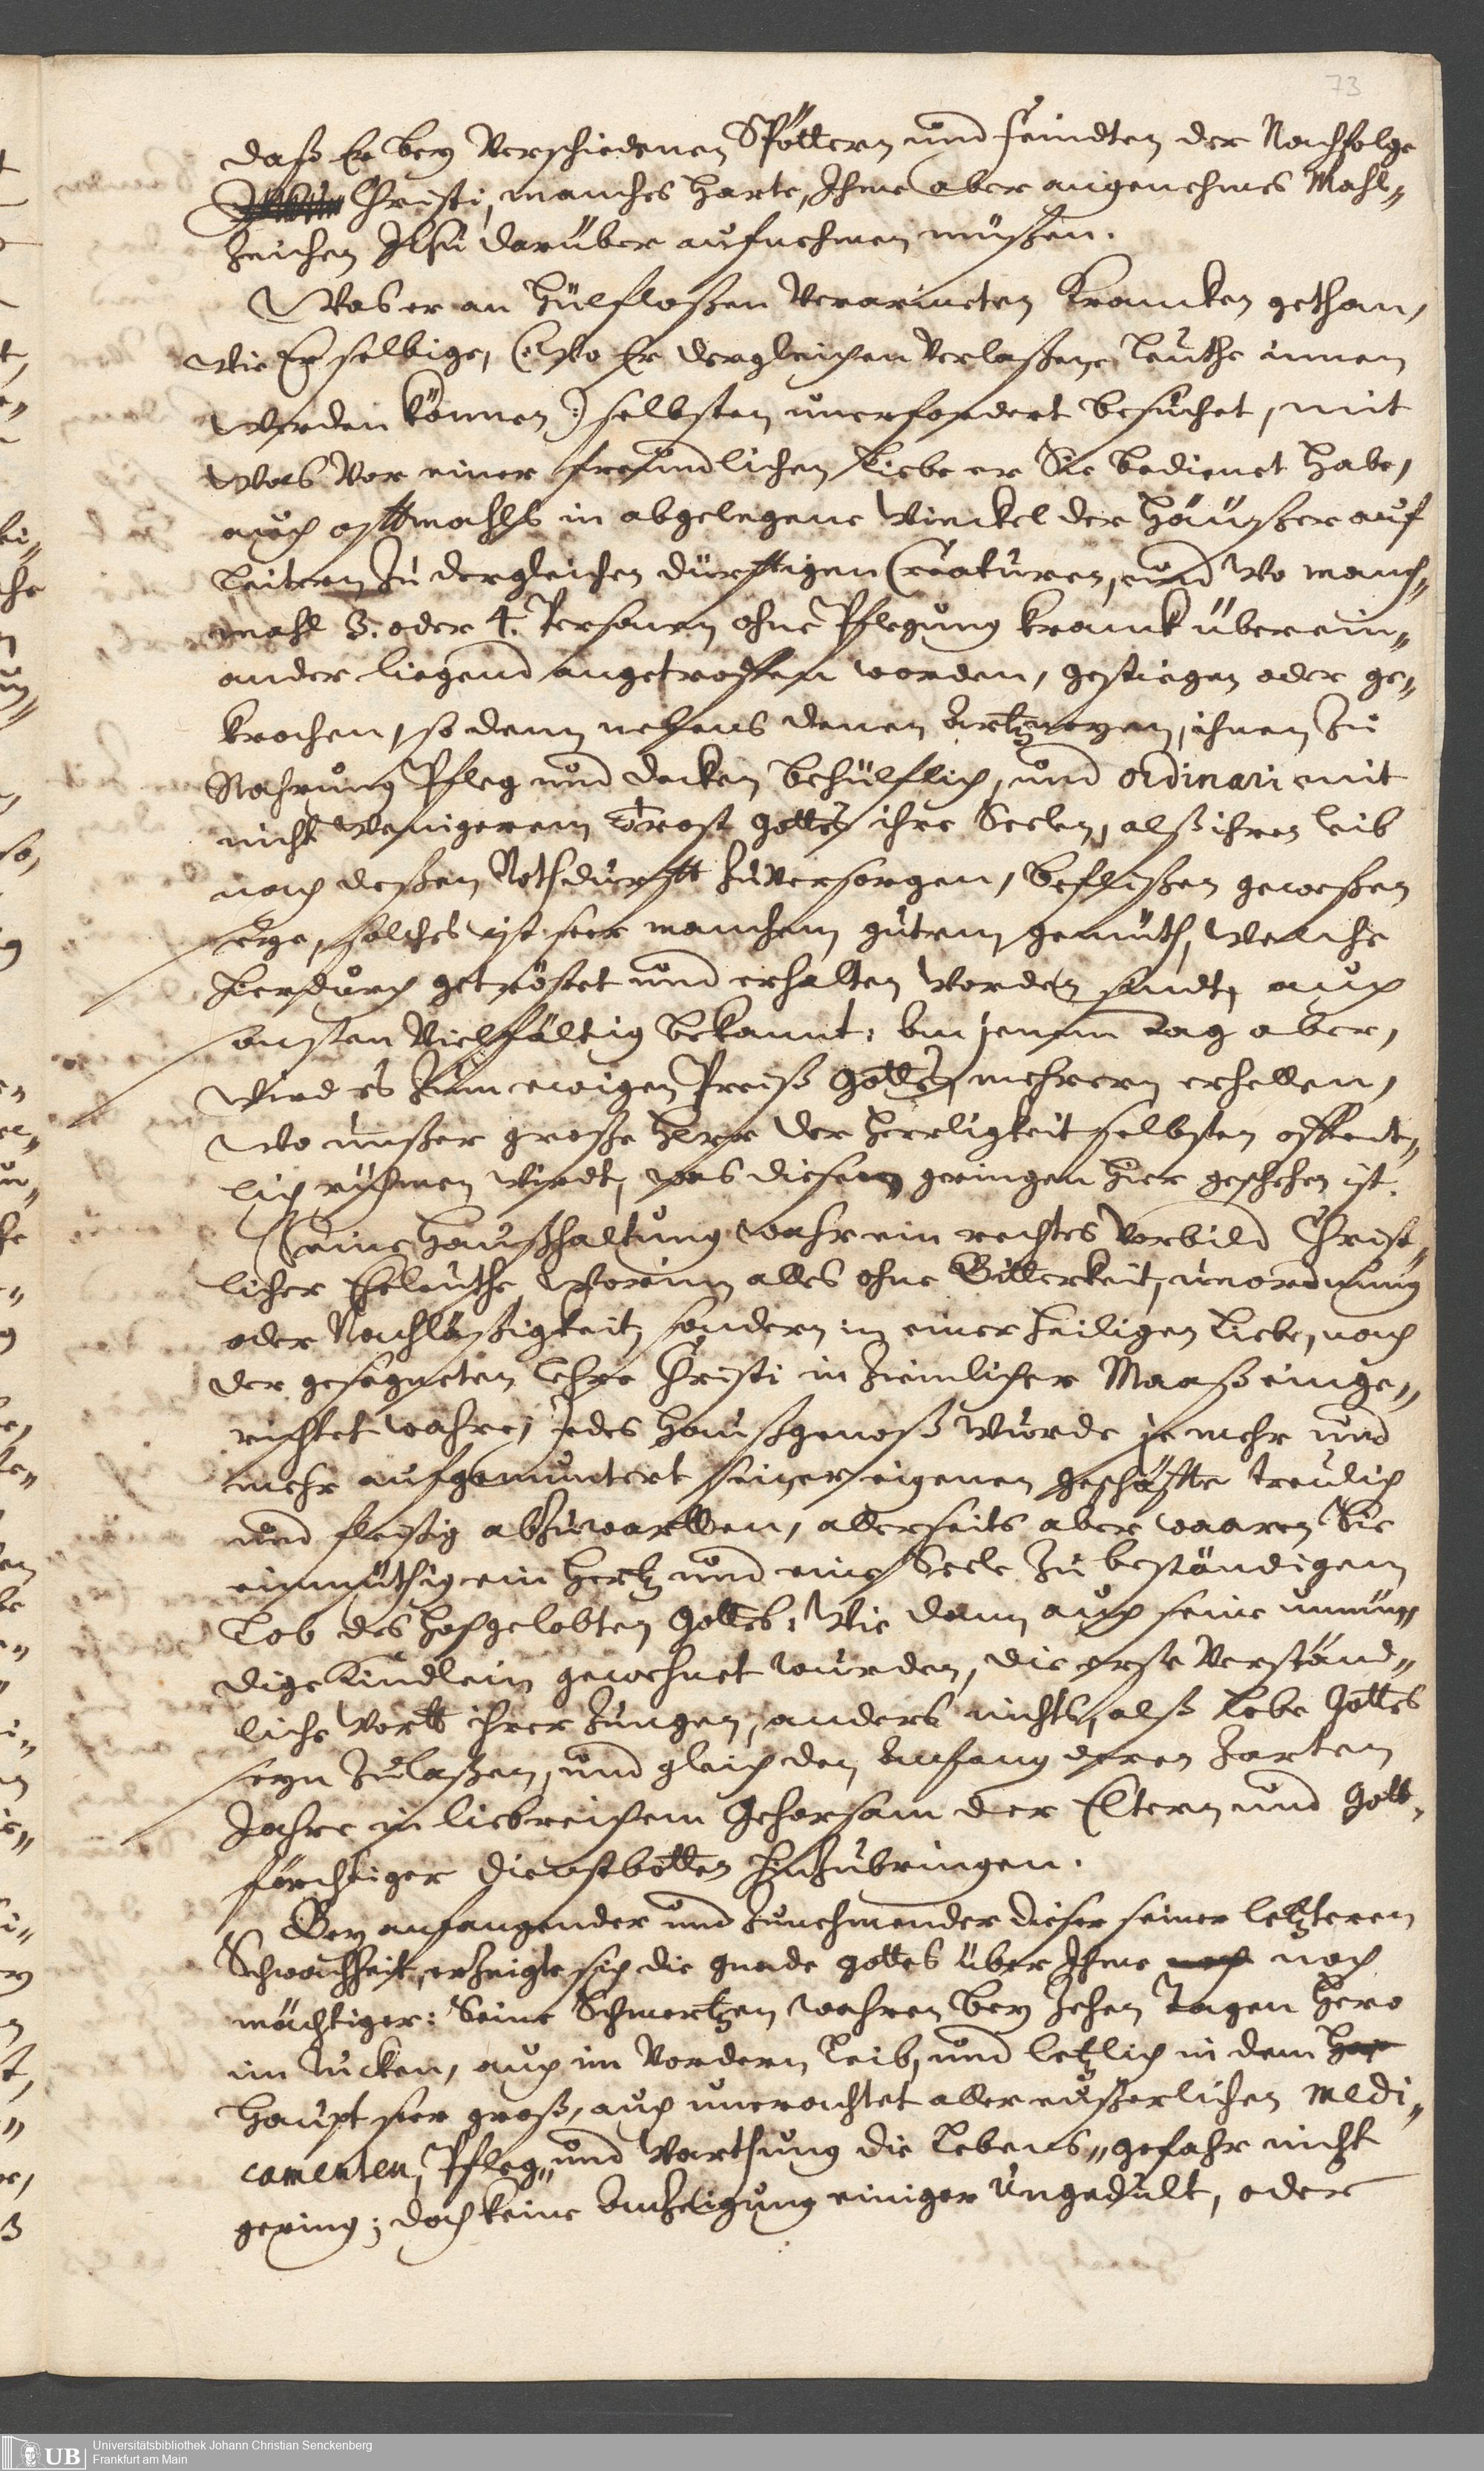 73
daß Er bey Verschiedenen Spöttern und feindten der Nachfolge
Christi, manches harte, Ihme aber angenehmes Mahl„
Zeichen JEsu darüber aufnehmen müßen.
Was er an hülfloßen Verarmeten Krancken gethan,
wie Er selbige, (: wo Er dergleichen Verlaßene Leuthe innen
werden können :) selbsten unerfordert besuchet, mit
was Vor einer freundlichen Liebe er Sie bedienet habe,
auch offtmahls in abgelegene Winckel der Häußer auf
Leitern zu dergleichen dürfftigen Creaturen, und wo manch„
mahl 3. oder 4. Personen ohne Pflegung kranck überein„
ander liegend angetroffen worden, gestiegen oder ge„
krochen, so dann nebens denen Artzneyen, ihnen zu
Nahrung Pfleg und decken behülflich, und ordinari mit
nicht wenigerem Trost Gottes ihre Seelen, alß ihren leib
nach deßen Nothdurfft zuversorgen, beflißen geweßen
seye, solches ist seer manchem gutem gemüth, welche
hierdurch getröstet und erhalten worden sindt, auch
sonsten Vielfältig bekannt; an jenem tag aber,
wird es zum ewigen Preiß Gottes mehrern erhellen,
wo unßer große HErr der Herrligkeit selbsten offent„
lich rühmen wirdt, was diesem geringen hier geschehen ist.
Seine Haußhaltung wahr ein rechtes Vorbild Christ„
licher Eheleuthe, worinn alles ohne Bitterkeit, unordnung
oder Nachläßigkeit, sondern in einer heiligen Liebe, nach
der gesegneten Lehre Christi in Zimlicher Maaß einge„
richtet wahre; jedes Haußgenoß wurde je mehr und
mehr aufgemuntert seiner eigenen geschäffte treulich
und fleißig abzuwartten, allerseits aber waaren Sie
einmüthig ein Hertz und eine Seele zu beständigem
Lob des hochgelobten Gottes; Wie dann auch seine unmün„
dige Kindlein gewehnet wurden, die erste Verständ„
liche Wortt ihrer Zungen, anders nichts, alß Lobe Gottes
seyn zulaßen, und gleich den Anfang deren Zarten
Jahre in liebreichem Gehorsam der Eltern und Gott„
förchtiger dienstbotten hinzubringen.
Bey anfangender und Zunehmender dieser seiner letzteren
Schwachheit, erzeigte sich die gnade gottes über Ihme noch
mächtiger: Seine Schmertzen wahren bey Zehen Tagen hero
im Rucken, auch im Vordern Leib, und letzlich in dem
Haupt seer groß, auch unerachtet aller eußerlichen Medi„
camenten, Pfleg„ und Warthung die Lebens„gefahr nicht
gering; doch keine Anzeigung einiger Ungedult, oder
Universitätsbibliothek Johann Christian Senckenberg
Frankfurt am Main
UB